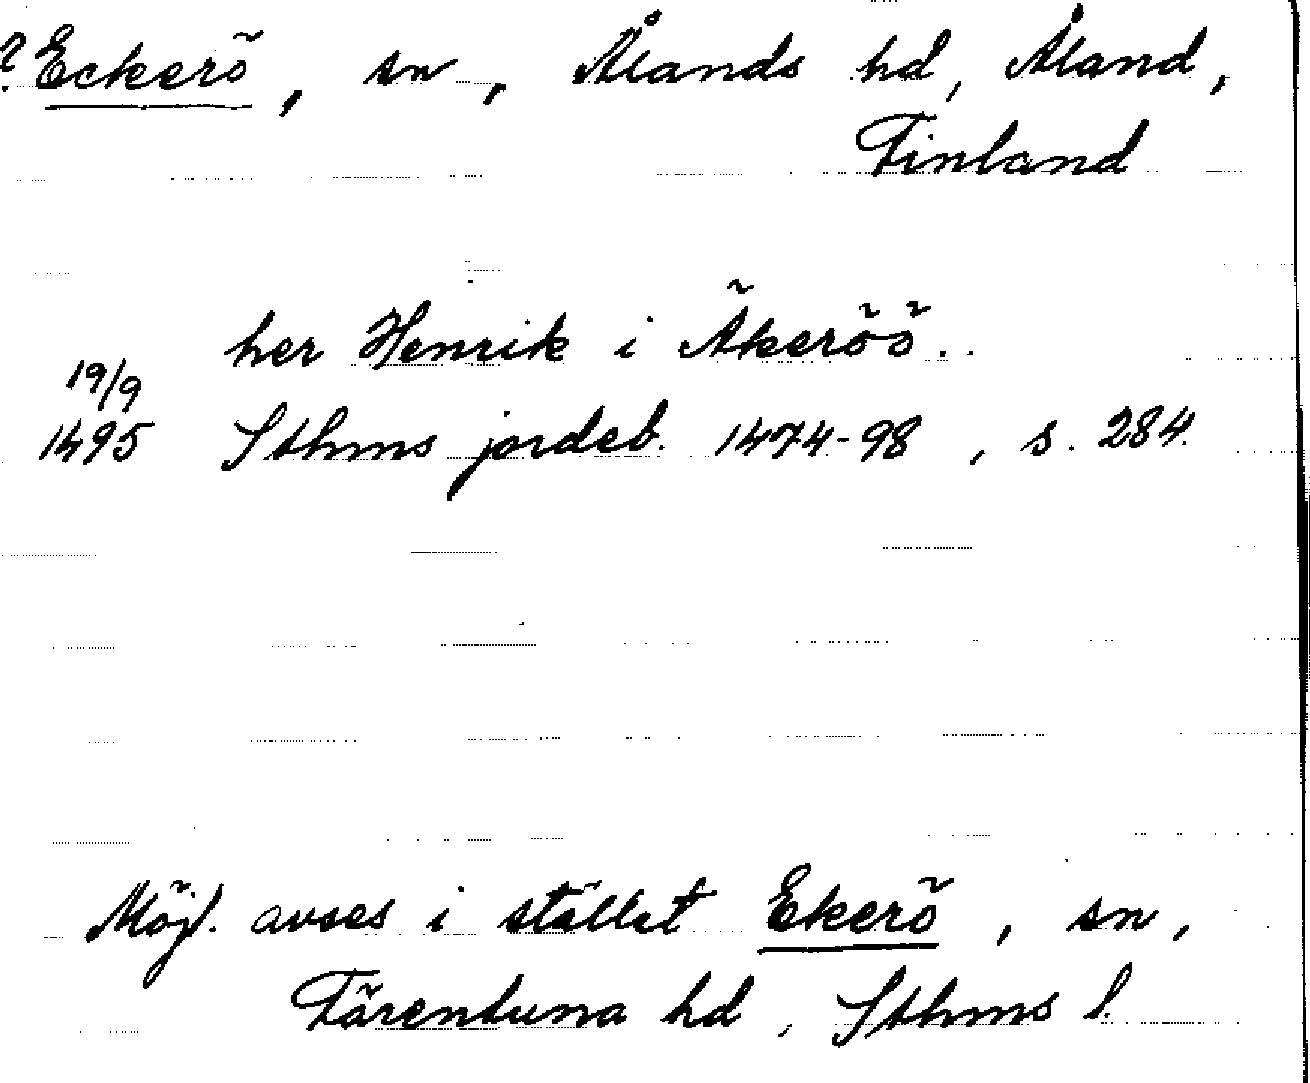 ? Eckerö, sn, Ålands hd, Åland,
Finland
her Henrik i Äkeröö..
19/9
1495 Sthms jordeb. 1474-98, s. 284.
Möjl. avses i stället Ekerö, sn,
Färentuna hd, Sthms l.